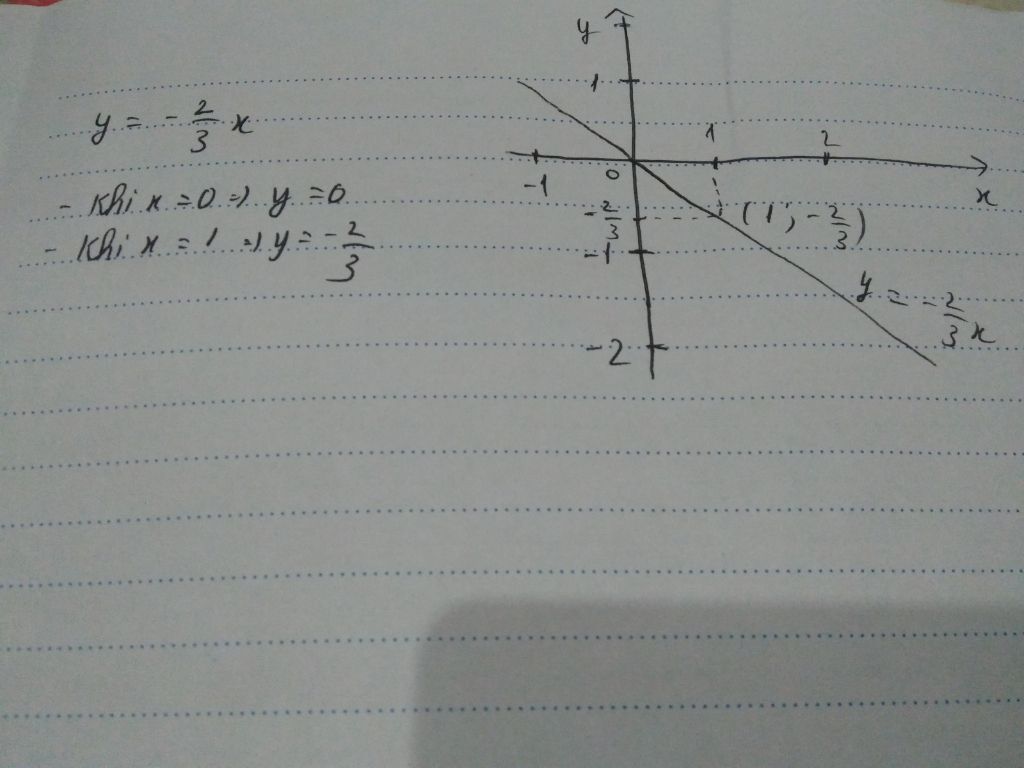 y = -2/3 x
- Khi x = 0 => y = 0
- Khi x = 1 => y = -2/3
y
1
1
2
-1
0
x
-2/3
(1; -2/3)
-1
y = -2/3 x
-2